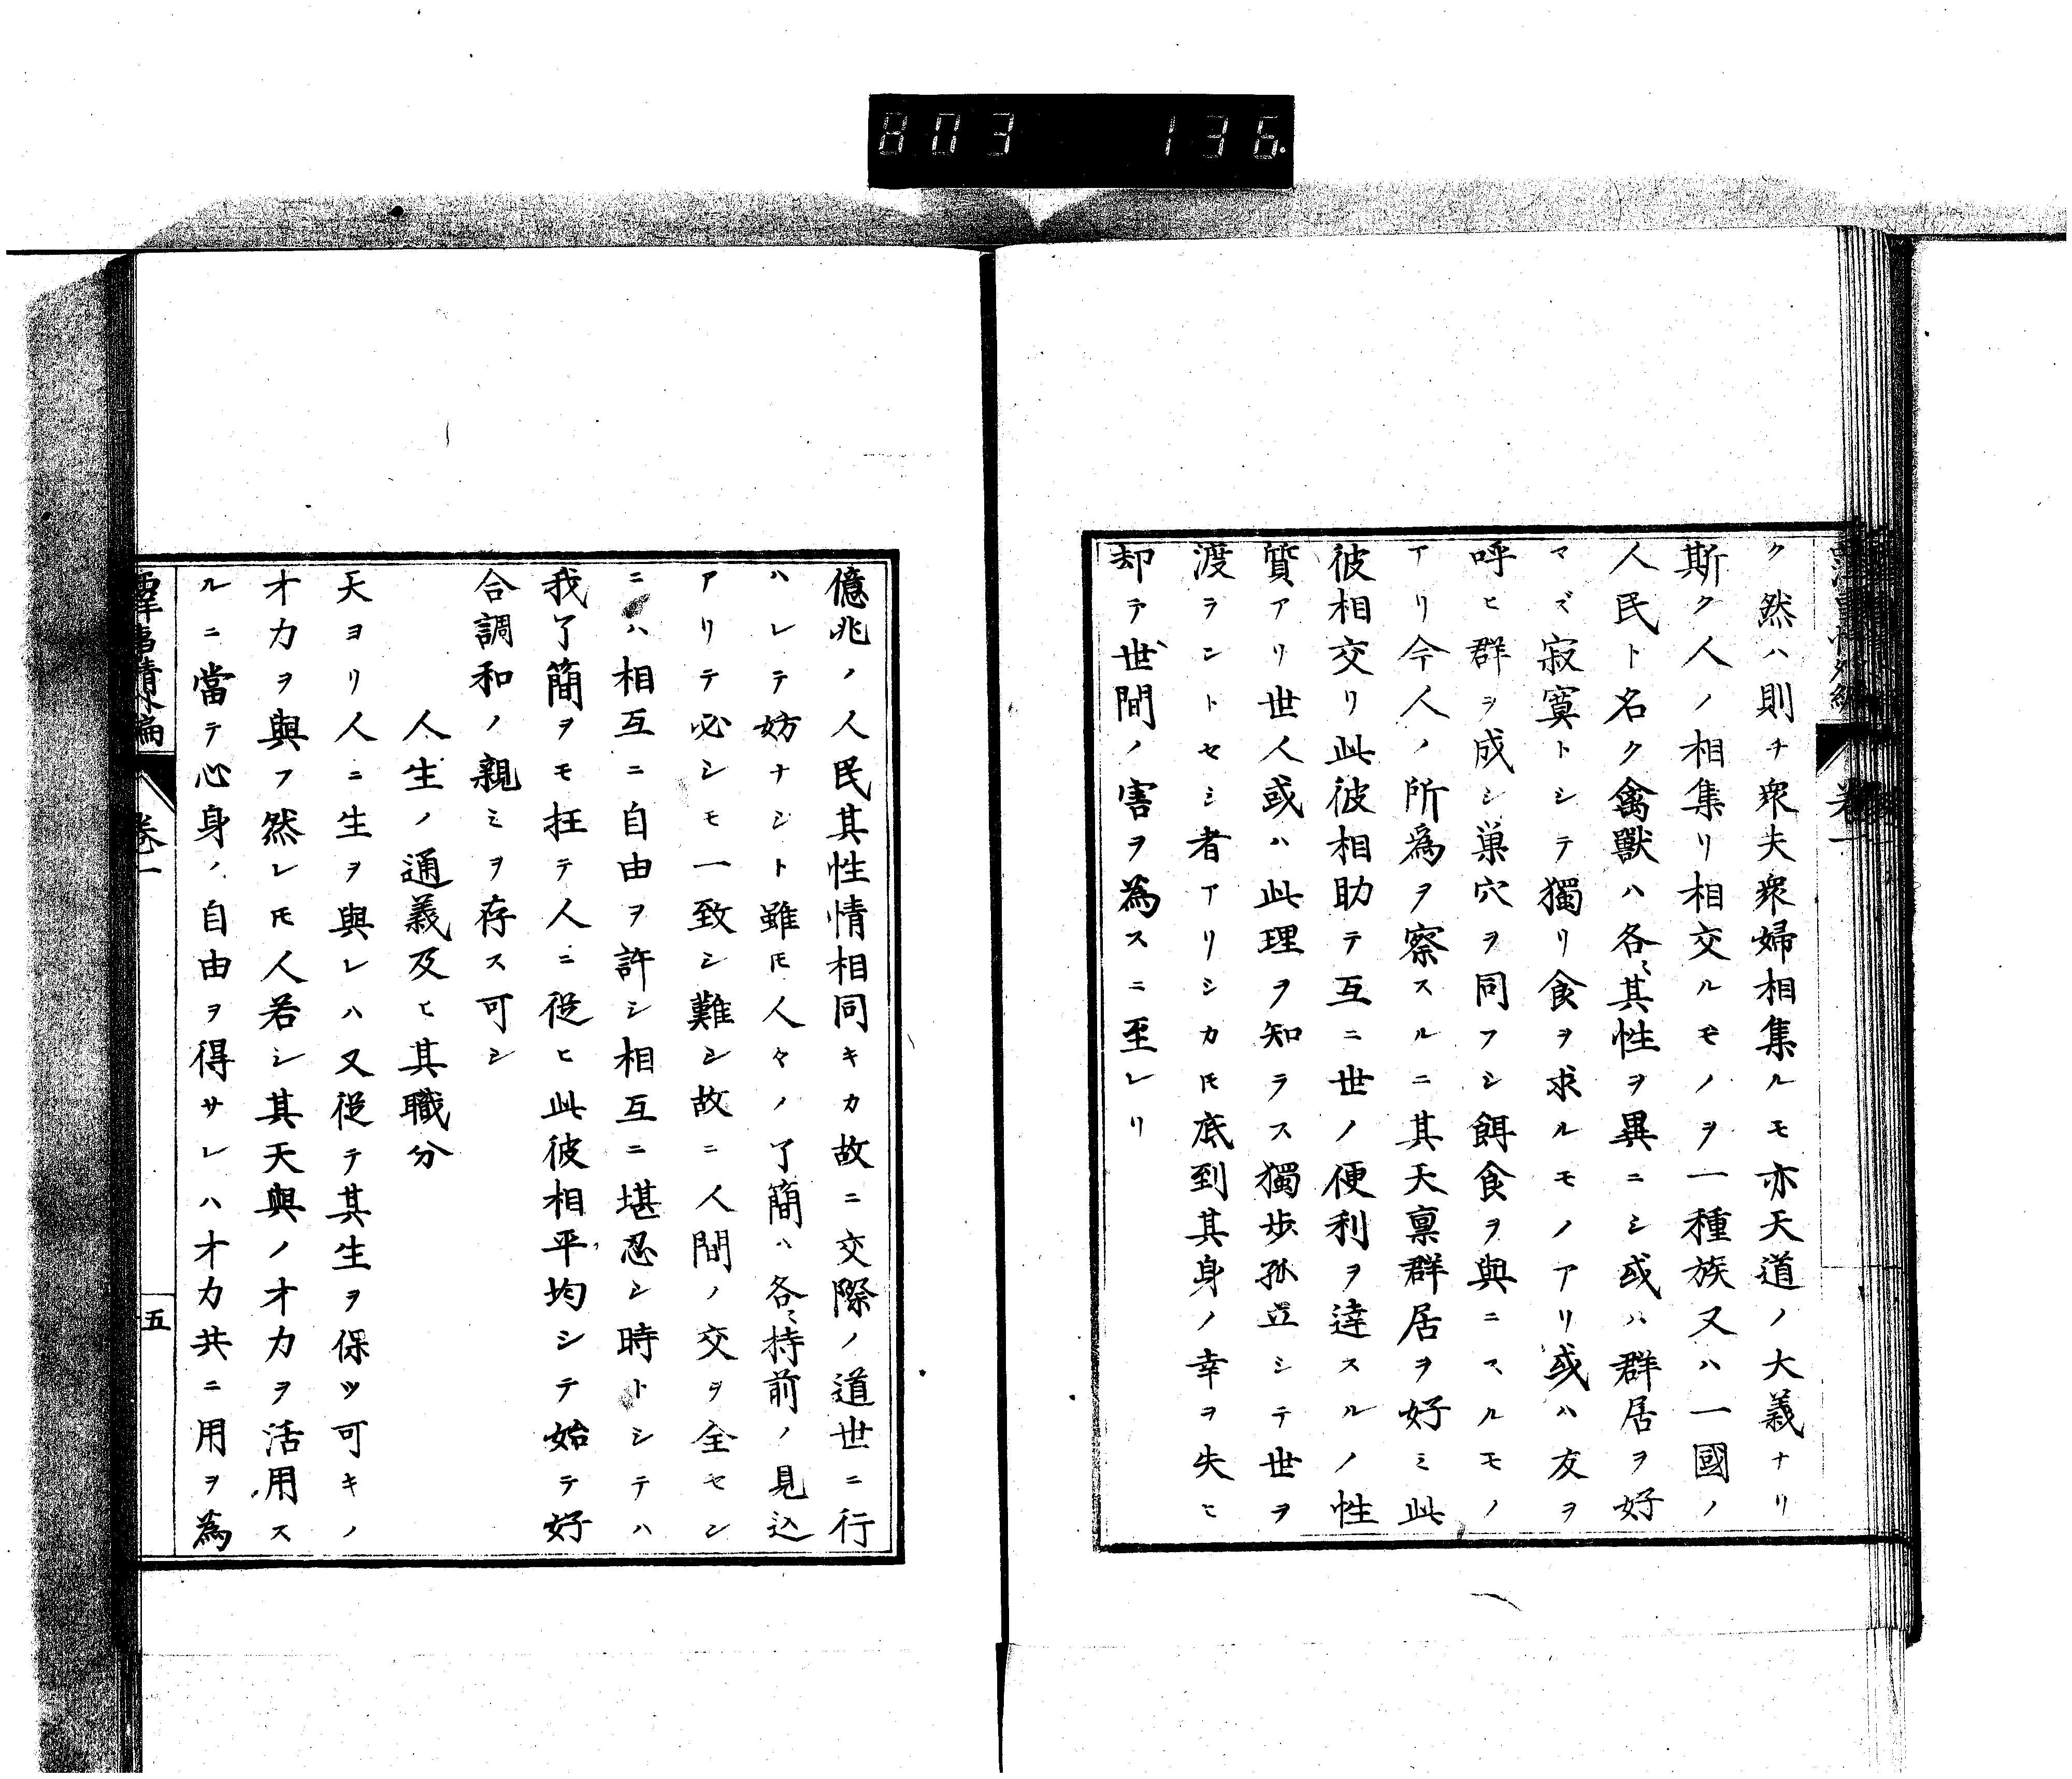 803 136
ク然ハ則チ衆夫衆婦相集ルモ亦天道ノ大義ナリ
斯ク人ノ相集リ相交ルモノヲ一種族又ハ一國ノ
人民ト名ク禽獸ハ各〻其性ヲ異ニシ或ハ群居ヲ好
マズ寂寞トシテ獨リ食ヲ求ルモノアリ或ハ友ヲ
呼ヒ群ヲ成シ巣穴ヲ同フシ餌食ヲ與ニスルモノ
アリ今人ノ所爲ヲ察スルニ其天稟群居ヲ好ミ此
彼相交リ此彼相助テ互ニ世ノ便利ヲ達スルノ性
質アリ世人或ハ此理ヲ知ラス獨歩孤立シテ世ヲ
渡ラントセシ者アリシカ𪜈底到其身ノ幸ヲ失ヒ
却テ世間ノ害ヲ為スニ至レリ
億兆ノ人民其性情相同キカ故ニ交際ノ道世ニ行
ハレテ妨ナシト雖𪜈人々ノ了簡ハ各〻持前ノ見込
アリテ必シモ一致シ難シ故ニ人間ノ交ヲ全セン
ニハ相互ニ自由ヲ許シ相互ニ堪忍シ時トシテハ
我了簡ヲモ抂テ人ニ從ヒ此彼相平均シテ始テ好
合調和ノ親ミヲ存ス可シ
人生ノ通義及ヒ其職分
天ヨリ人ニ生ヲ與レハ又從テ其生ヲ保ツ可キノ
才力ヲ與フ然レ𪜈人若シ其天與ノ才力ヲ活用ス
ルニ當テ心身ノ自由ヲ得サレハ才力共ニ用ヲ為
西洋事情外編 卷一 五